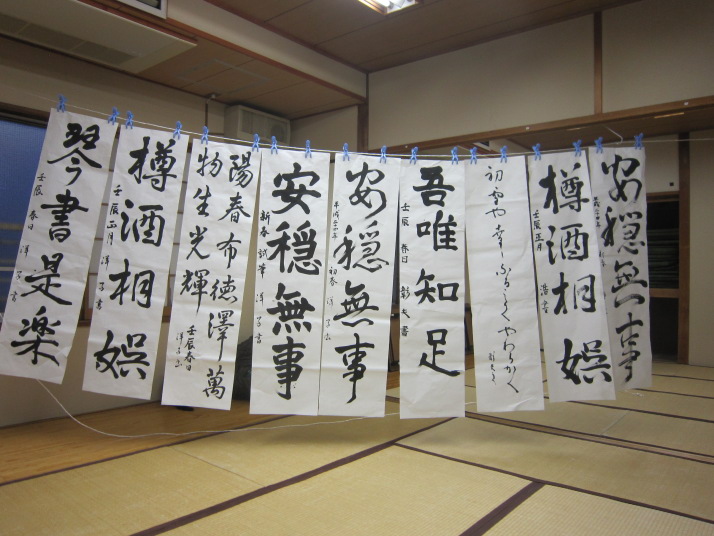 琴書是楽
壬辰 春日 洋子書
樽酒相娯
壬辰正月 洋子書
陽春布徳澤萬
物生光輝
壬辰春日
安穏無事
新春試筆 洋子書
安穏無事
平成二十四年 初春
吾唯知足
壬辰 春日 彰太書
初雪や
やわらかく
樽酒相娯
壬辰正月
安穏無事